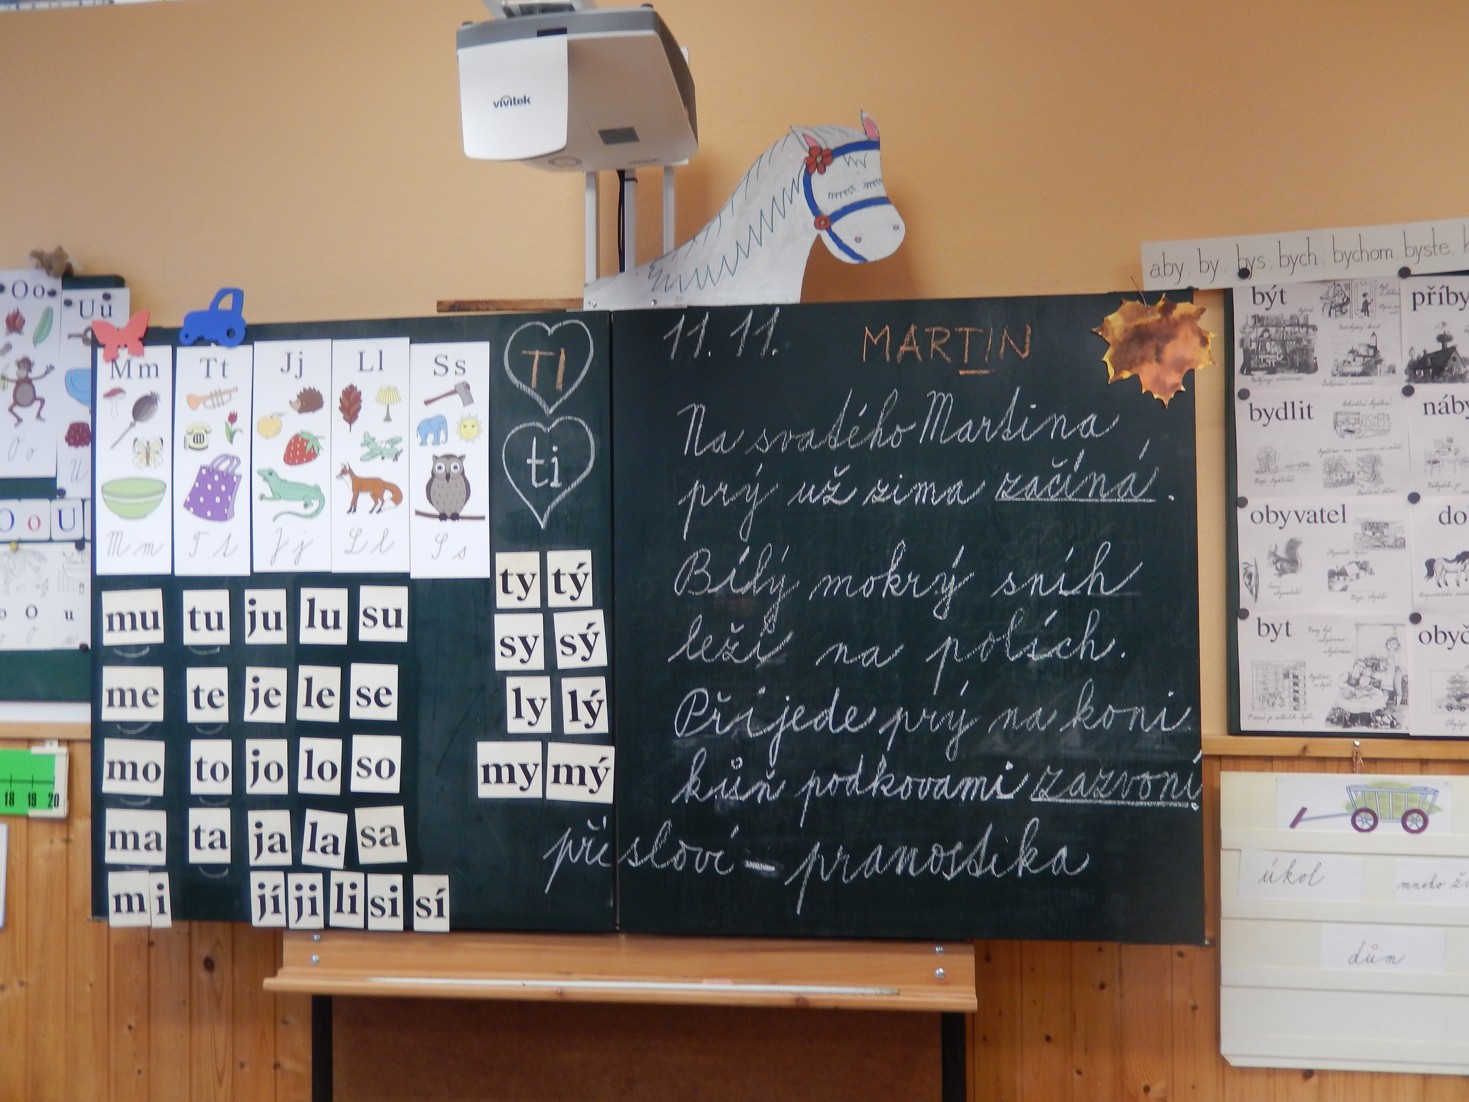 vivitek
aby, by, bys, bych, bychom, byste,
Oo
Uu
Mm Tt Jj Ll Ss
M m T t J j L l S s
O o U
o O u
TI
ti
ty tý
sy sý
ly lý
my mý
mu tu ju lu su
me te je le se
mo to jo lo so
ma ta ja la sa
m i jí ji li si sí
11. 11. MARTIN
Na svatého Martina
prý už zima začíná.
Bílý mokrý sníh
leží na polích.
Přijede prý na koni
kůň podkovami zazvoní.
přísloví - pranostika
být
bydlit
obyvatel
byt
18 19 20
úkol
mnoho
dům